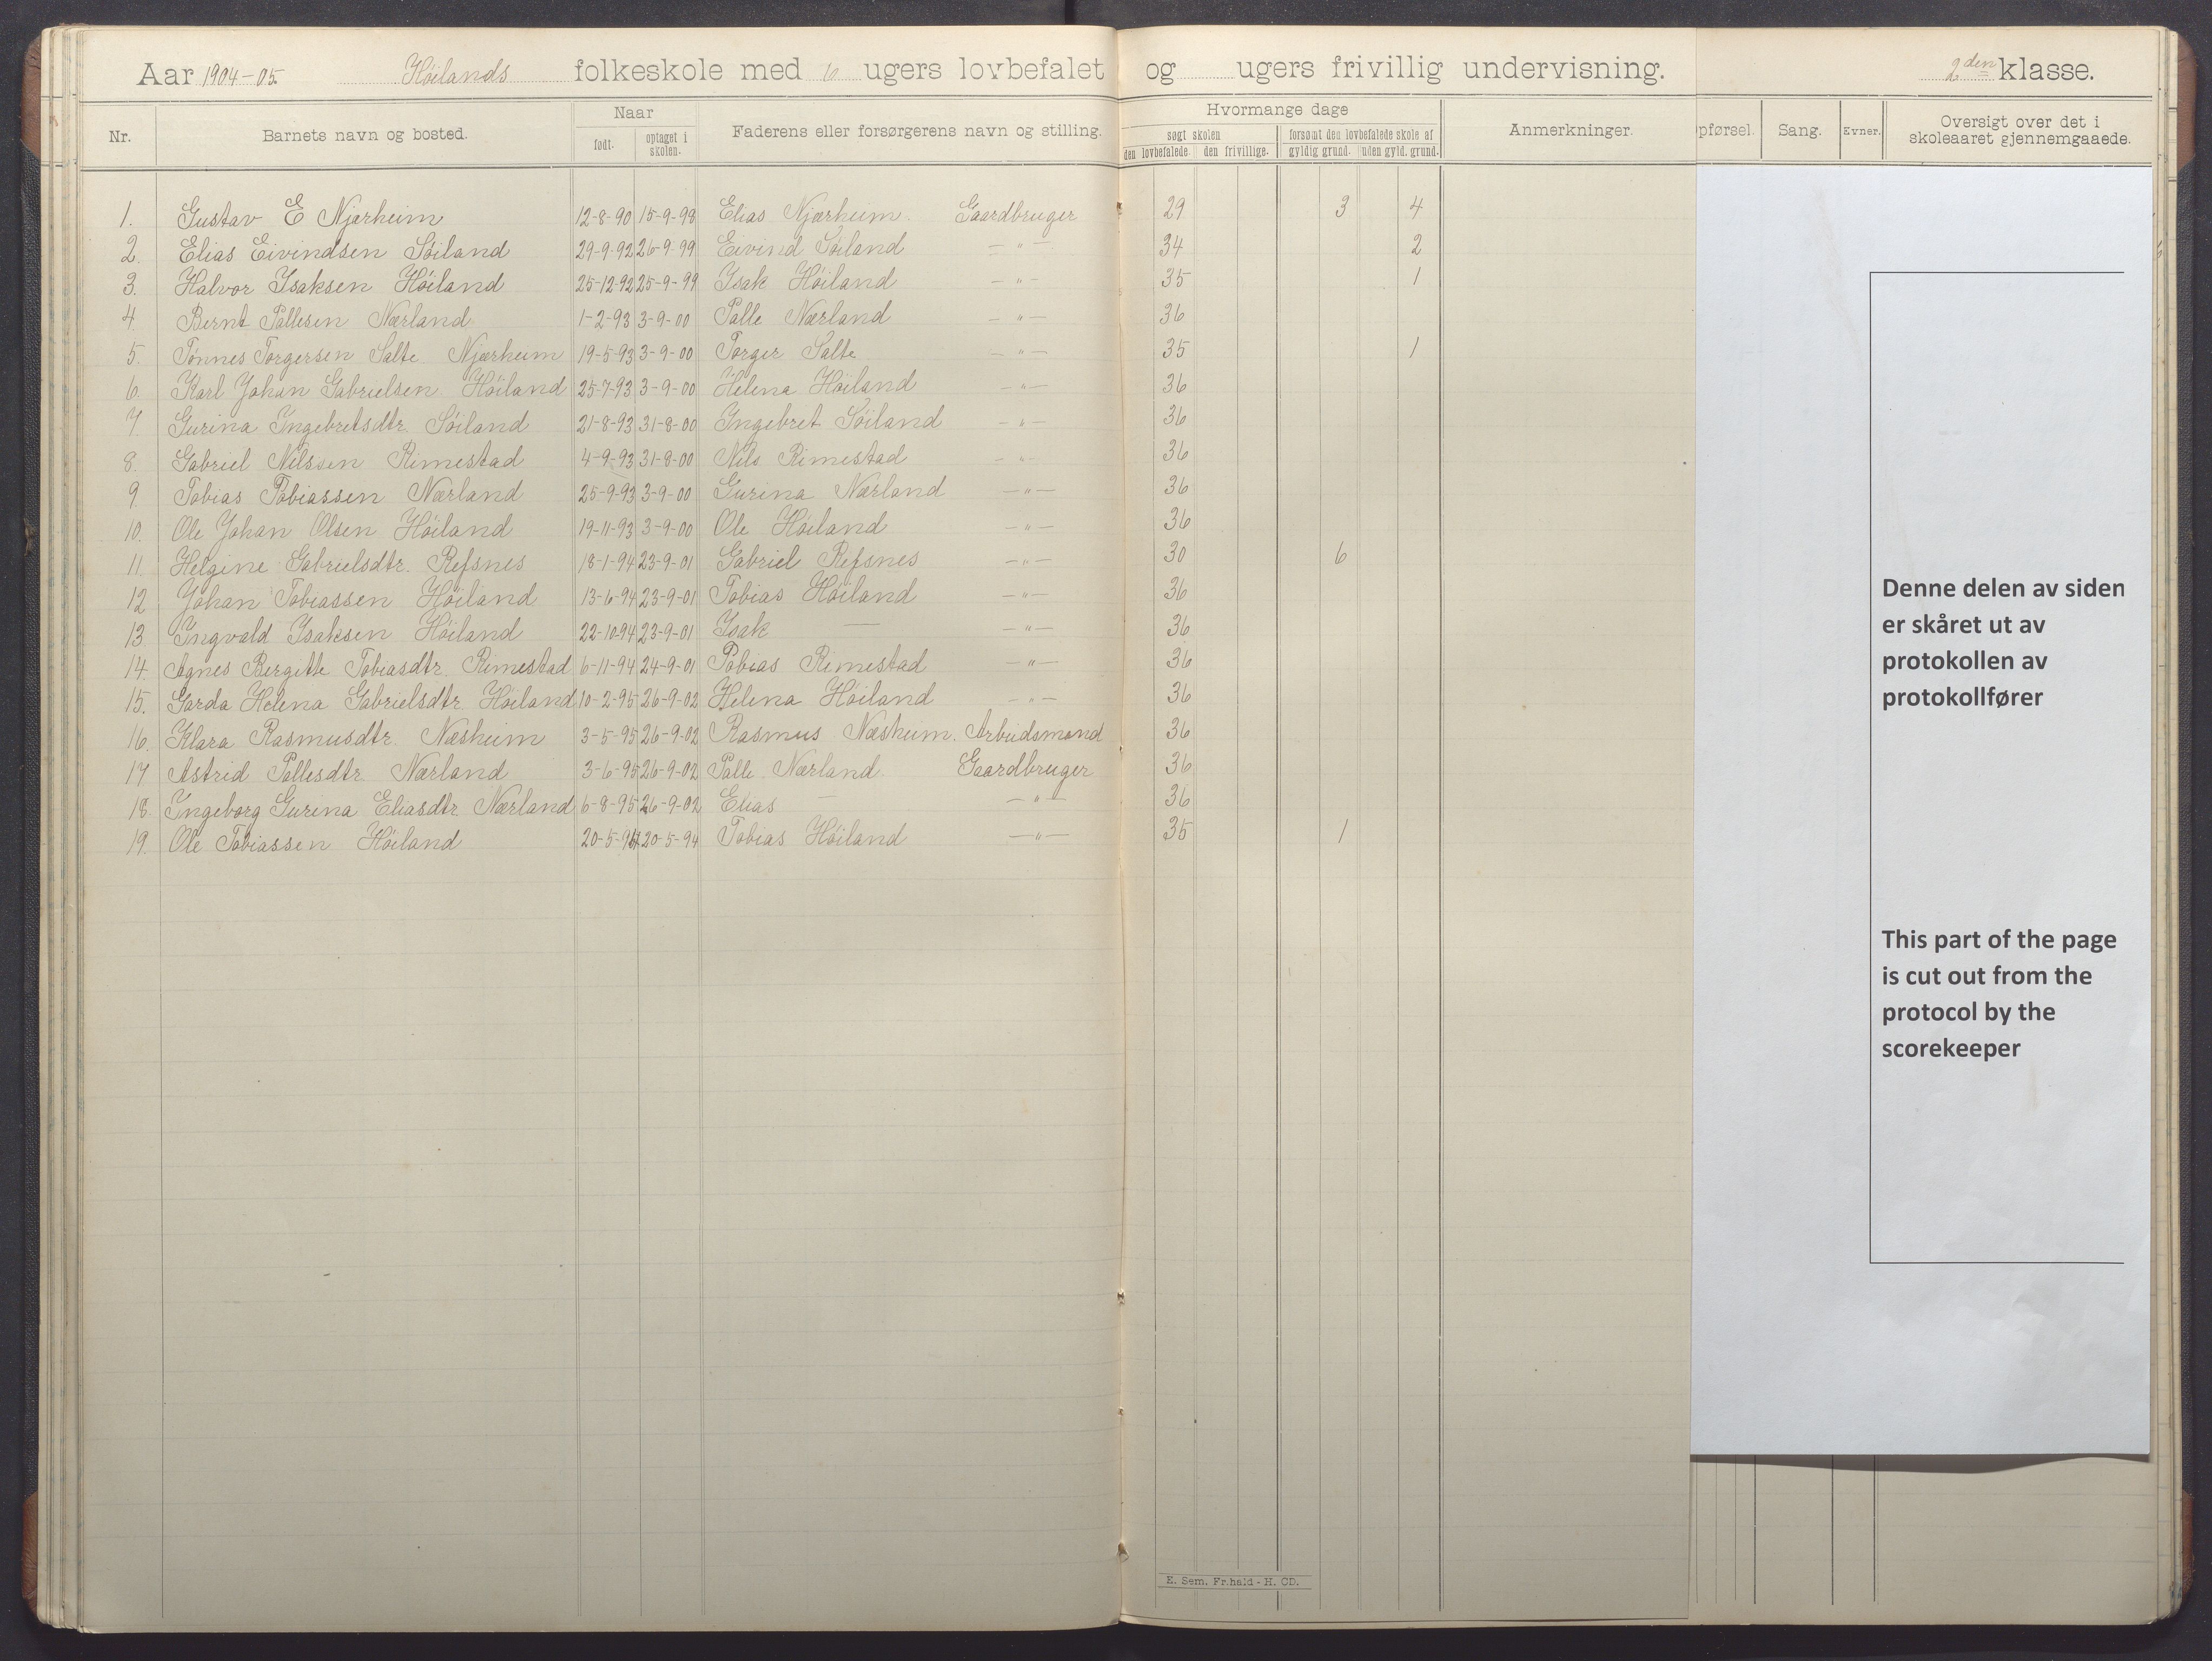 Aar 1904-05. Höilands folkeskole med 6 ugers lovbefalet og ugers frivillig undervisning. 2den klasse.
Nr. Barnets navn og bosted. Naar født. optaget i skolen. Faderens eller forsørgerens navn og stilling. Hvormange dage søgt skolen den lovbefalede. den frivillige. forsømt den lovbefalede skole af gyldig grund. uden gyld. grund. Anmerkninger. pførsel. Sang. Evner. Oversigt over det i skoleaaret gjennemgaaede.
1. Gustav E Njærheim 12-8-90 15-9-98 Elias Njærheim. Gaardbruger 29 3 4
2. Elias Eivindsen Söiland 29-9-92 26-9-99 Eivind Söiland — " — 34 2
3. Halvor Isaksen Höiland 25-12-92 25-9-99 Isak Höiland — " — 35 1
4. Bernt Pallesen Nærland 1-2-93 3-9-00 Palle Nærland — " — 36
5. Tönnes Torgersen Salte Njærheim 19-5-93 3-9-00 Torger Salte — " — 35 1
6. Karl Johan Gabrielsen Höiland 25-7-93 3-9-00 Helena Höiland — " — 36
7. Gurina Ingebretsdtr. Söiland 21-8-93 31-8-00 Ingebret Söiland — " — 36
8. Gabriel Nilssen Rimestad 4-9-93 31-8-00 Nils Rimestad — " — 36
9. Tobias Tobiassen Nærland 25-9-93 3-9-00 Gurina Nærland — " — 36
10. Ole Johan Olsen Höiland 19-11-93 3-9-00 Ole Höiland — " — 36
11. Helgine Gabrielsdtr. Refsnes 18-1-94 23-9-01 Gabriel Refsnes — " — 30 6
12 Johan Tobiassen Höiland 13-6-94 23-9-01 Tobias Höiland — " — 36
13. Ingvald Isaksen Höiland 22-10-94 23-9-01 Isak — — " — 36
14. Agnes Bergitte Tobiasdtr. Rimestad 6-11-94 24-9-01 Tobias Rimestad — " — 36
15. Garda Helena Gabrielsdtr. Höiland 10-2-95 26-9-02 Helena Höiland — " — 36
16. Klara Rasmusdtr. Næsheim 3-5-95 26-9-02 Rasmus Næsheim. Arbeidsmand 36
17 Astrid Pallesdtr. Nærland 3-6-95 26-9-02 Palle Nærland. Gaardbruger 36
18. Ingeborg Gurina Eliasdtr. Nærland 6-8-95 26-9-02 Elias — — " — 36
19. Ole Tobiassen Höiland 20-5-94 20-5-94 Tobias Höiland — " — 35 1
Denne delen av siden
er skåret ut av
protokollen av
protokollfører
This part of the page
is cut out from the
protocol by the
scorekeeper
E. Sem. Fr.hald - H. CD.